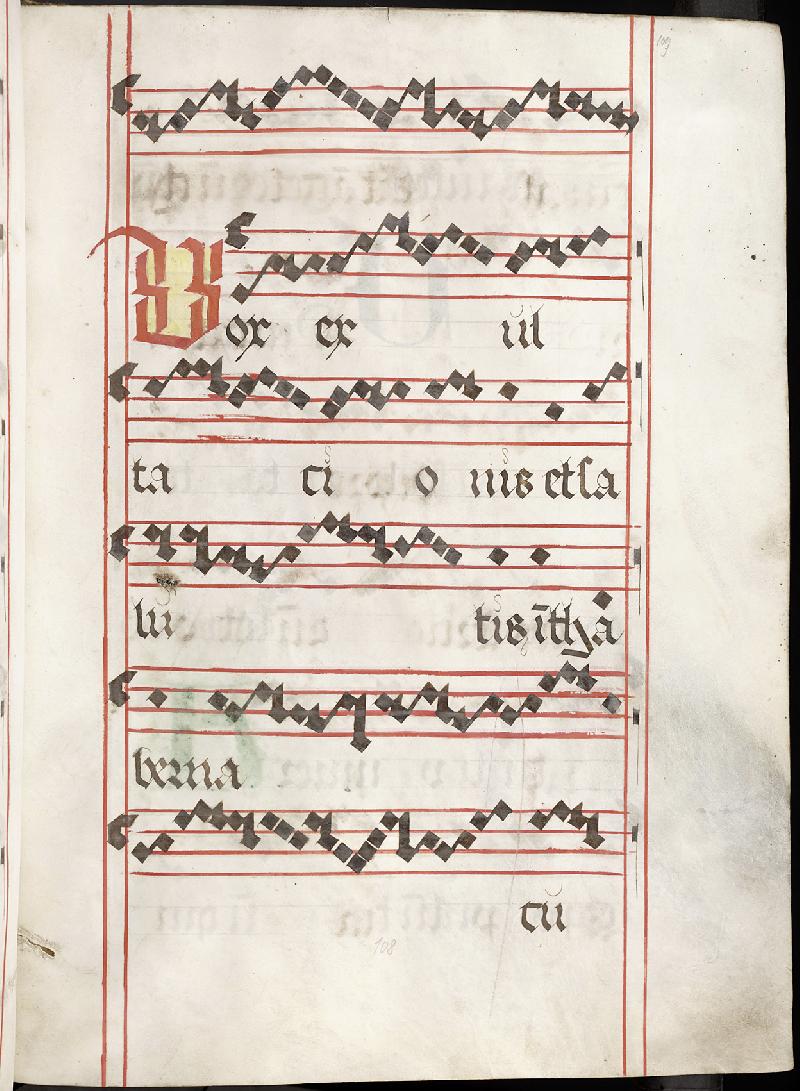 109
Vox ex ul
ta ci o nis et sa
lu tis ĩ tha
berna
cu
108